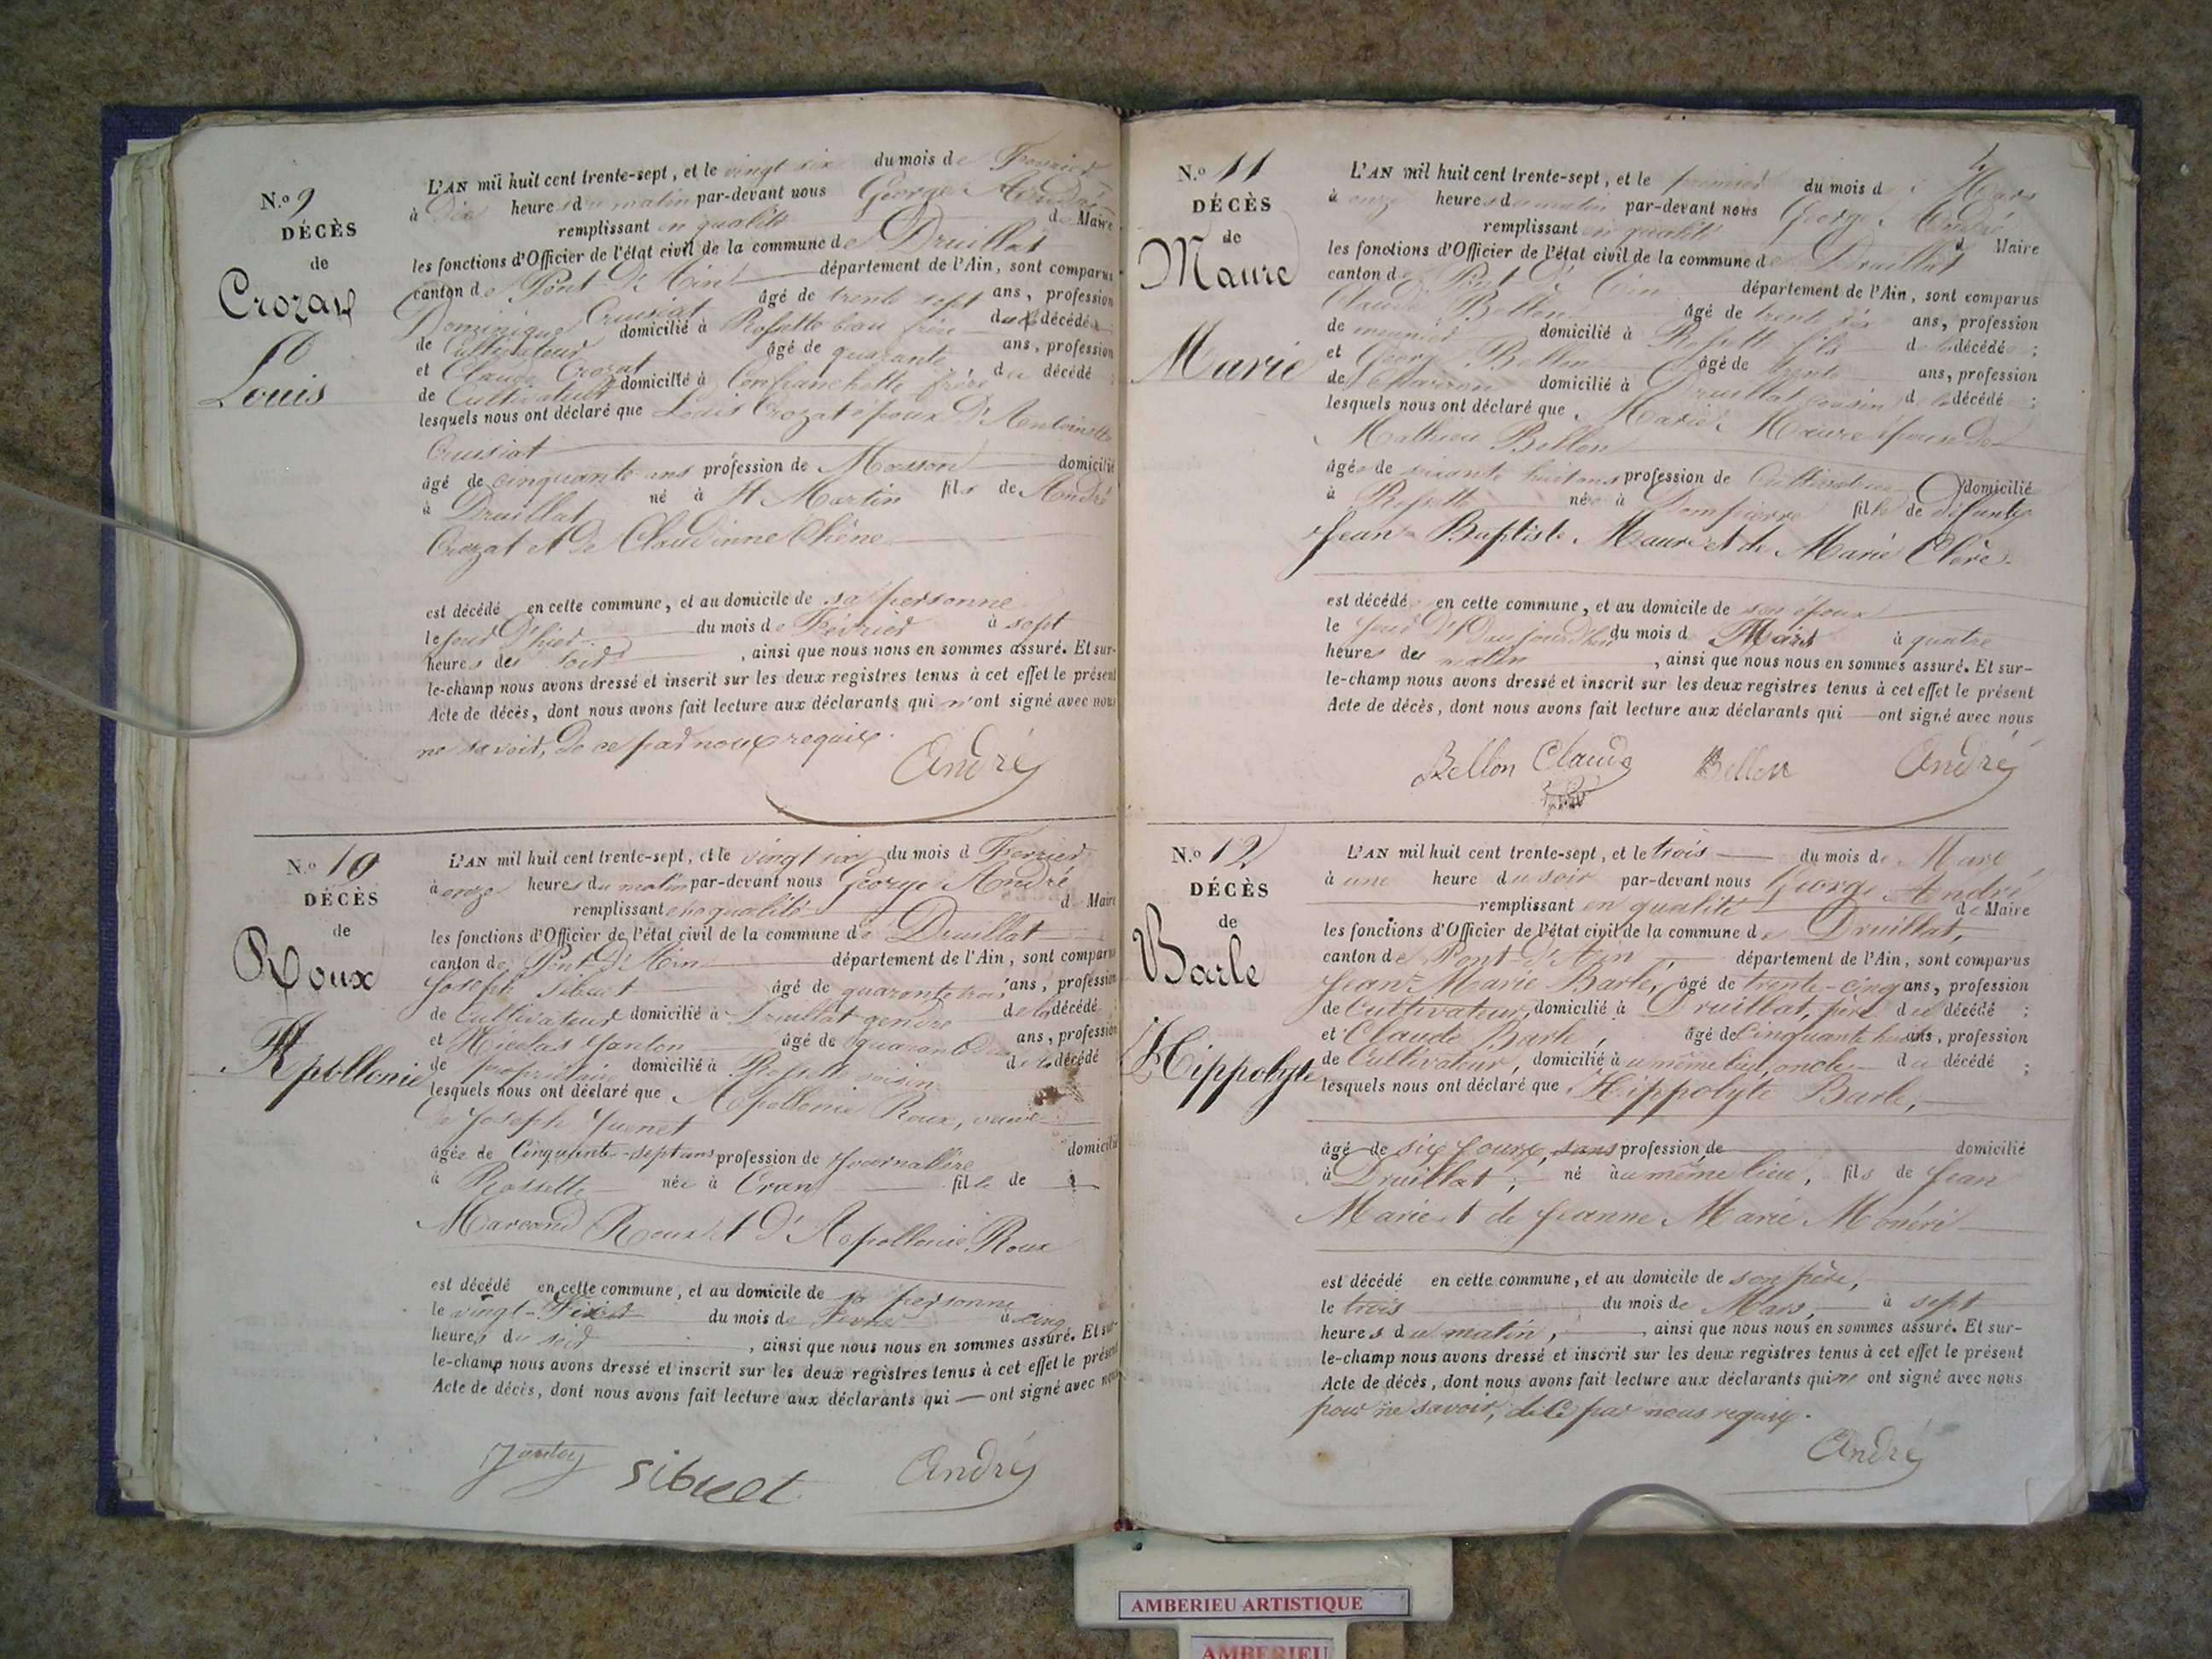 N.º 9
DÉCÈS
de
Crozat
Louis
L'AN mil huit cent trente-sept, et le vingt six du mois de Fevrier
à Dix heures du matin par-devant nous George André
remplissant en qualité de Maire
les fonctions d'Officier de l'état civil de la commune de Druillat
canton de Pont d'Ain département de l'Ain, sont comparus
Dominique Cruisiat âgé de trente sept ans, profession
de Cultivateur domicilié à Rossette beau frère du décédé
et Claude Crozat âgé de quarante ans, profession
de Cultivateur domicilié à Confranchette frère du décédé ;
lesquels nous ont déclaré que Louis Crozat époux d'Antoinette
Cruisiat
âgé de cinquante ans profession de Masson domicilié
à Druillat né à St Martin fils de André
Crozat et de Claudinne Chêne
est décédé en cette commune, et au domicile de sa personne
le jour d'hier du mois de Février à sept
heures du soir, ainsi que nous nous en sommes assuré. Et sur-
le-champ nous avons dressé et inscrit sur les deux registres tenus à cet effet le présent
Acte de décès, dont nous avons fait lecture aux déclarants qui n'ont signé avec nous
ne savoir, de ce par nous requis.
André
N.º 10
DÉCÈS
de
Roux
Apollonie
L'AN mil huit cent trente-sept, et le vingt six du mois d Fevrier
à onze heures du matin par-devant nous George André
remplissant en qualité d Maire
les fonctions d'Officier de l'état civil de la commune de Druillat
canton de Pont d'Ain département de l'Ain, sont comparus
Joseph Sibuet âgé de quarante trois ans, profession
de Cultivateur domicilié à Druillat gendre de la décédé ;
et Nicolas Janton âgé de quarante ans, profession
de propriétaire domicilié à Rossette voisin de la décédé
lesquels nous ont déclaré que Apollonie Roux, veuve
de Joseph Juenet
âgée de Cinquante-sept ans profession de Journallière domicilié
à Rossette née à Cran fille de
Marcand Roux et d'Apollonie Roux
est décédé en cette commune, et au domicile de sa personne
le vingt- du mois de Fevrier à cinq
heures du soir, ainsi que nous nous en sommes assuré. Et sur-
le-champ nous avons dressé et inscrit sur les deux registres tenus à cet effet le présent
Acte de décès, dont nous avons fait lecture aux déclarants qui — ont signé avec nous
Janton sibuet André
N.º 11
DÉCÈS
de
Maure
Marie
L'AN mil huit cent trente-sept, et le premier du mois de Mars
à onze heures du matin par-devant nous George André
remplissant en qualité d Maire
les fonctions d'Officier de l'état civil de la commune de Druillat
canton de Pont d'Ain département de l'Ain, sont comparus
Claude Bellon âgé de trente six ans, profession
de meunier domicilié à Rossette fils de la décédée ;
et George Bellon âgé de trente ans, profession
de Charron domicilié à Druillat cousin de la décédé ;
lesquels nous ont déclaré que Marie Maure épouse de
Mathieu Bellon
âgée de soixante huit ans profession de Cultivateur domicilié
à Rossette née à Dompierre fille de défunts
Jean-Baptiste Maure et de Marie Clère.
est décédée en cette commune, et au domicile de son époux
le jour d'aujourd'hui du mois d Mars à quatre
heures des matin, ainsi que nous nous en sommes assuré. Et sur-
le-champ nous avons dressé et inscrit sur les deux registres tenus à cet effet le présent
Acte de décès, dont nous avons fait lecture aux déclarants qui — ont signé avec nous
Bellon Claude Bellon André
N.º 12
DÉCÈS
de
Barle
Hippolyte
L'AN mil huit cent trente-sept, et le trois du mois de Mars
à une heure du soir par-devant nous George André
remplissant en qualité de Maire
les fonctions d'Officier de l'état civil de la commune de Druillat,
canton de Pont-d'Ain, département de l'Ain, sont comparus
Jean-Marie Barle, âgé de trente-cinq ans, profession
de Cultivateur, domicilié à Druillat, père du décédé ;
et Claude Barle, âgé de Cinquante huit ans, profession
de Cultivateur, domicilié au même lieu, oncle du décédé ;
lesquels nous ont déclaré que Hippolyte Barle,
âgé de six jours, sans profession de domicilié
à Druillat, né au même lieu, fils de Jean
Marie et de Jeanne Marie Monéri
est décédé en cette commune, et au domicile de son père,
le trois du mois de Mars, à sept
heures du matin, ainsi que nous nous en sommes assuré. Et sur-
le-champ nous avons dressé et inscrit sur les deux registres tenus à cet effet le présent
Acte de décès, dont nous avons fait lecture aux déclarants qui n' ont signé avec nous
pour ne savoir, de ce par nous requis.
André
AMBERIEU ARTISTIQUE
AMBERIEU